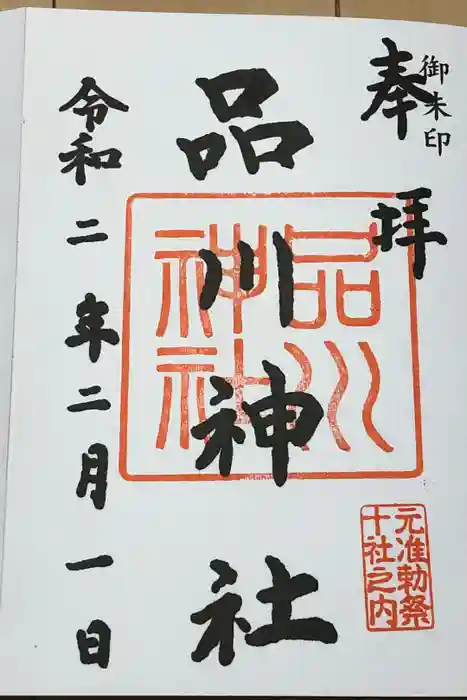 御朱印
奉拝
品川神社
品川
神社
元准勅祭
十社之内
令和二年二月一日